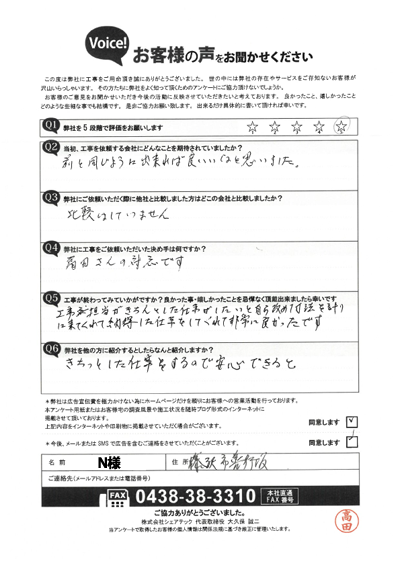 Voice!
お客様の声をお聞かせください
この度は弊社に工事をご用命頂き誠にありがとうございました。世の中には弊社の存在やサービスをご存知ないお客様が
沢山いらっしゃいます。その方たちに弊社をよく知って頂くためのアンケートにご協力頂けないでしょうか。
お客様のご意見をお聞かせいただき今後の活動に反映させていただきたいと考えております。良かったこと、嬉しかったこと
どのような些細な事でも結構です。是非ご協力お願い致します。出来るだけ具体的に書いて頂ければ幸いです。
Q1 弊社を5段階で評価をお願いします ☆ ☆ ☆ ☆ ☆
Q2 当初、工事を依頼する会社にどんなことを期待されていましたか？
前と同じように出来れば良いいなと思いました。
Q3 弊社にご依頼いただく際に他社と比較しました方はどこの会社と比較しましたか？
比較はしていません
Q4 弊社に工事をご依頼いただいた決め手は何ですか？
高田さんの対応です
Q5 工事が終わってみていかがですか？良かった事・嬉しかったことを忌憚なく頂戴出来ましたら幸いです
工事担当がきちんとした仕事がしたいと自ら改め寸法を計り
に来てくれて納得した仕事をしてくれて非常に良かったです
Q6 弊社を他の方に紹介するとしたらなんと紹介しますか？
きちっとした仕事をするので安心できると
＊弊社は広告宣伝費を極力かけない為にホームページだけを頼りにお客様への営業活動を行っております。
本アンケート用紙またはお客様宅の調査風景や施工状況を随時ブログ形式のインターネットに
掲載させて頂いております。
上記内容をインターネットや印刷物に掲載させていただく場合がございます。
同意します ✓
＊今後、メールまたは SMS で広告を含むご連絡をさせていただくことがございます。
同意します ✓
名 前 N様 住 所
ご連絡先(メールアドレスまたは電話番号)
FAX 0438-38-3310 本社直通 FAX 番号
ご協力ありがとうございました。
株式会社シェアテック 代表取締役 大久保 誠二
当アンケートで取得したお客様の個人情報は関係法規に基づき厳正に管理いたします。
高田